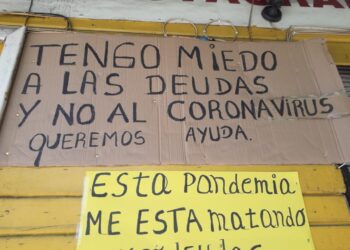 TENGO MIEDO
A LAS DEUDAS
Y NO AL CORONAVIRUS
QUEREMOS AYUDA.
ESTA PANDEMIA
ME ESTA MATANDO